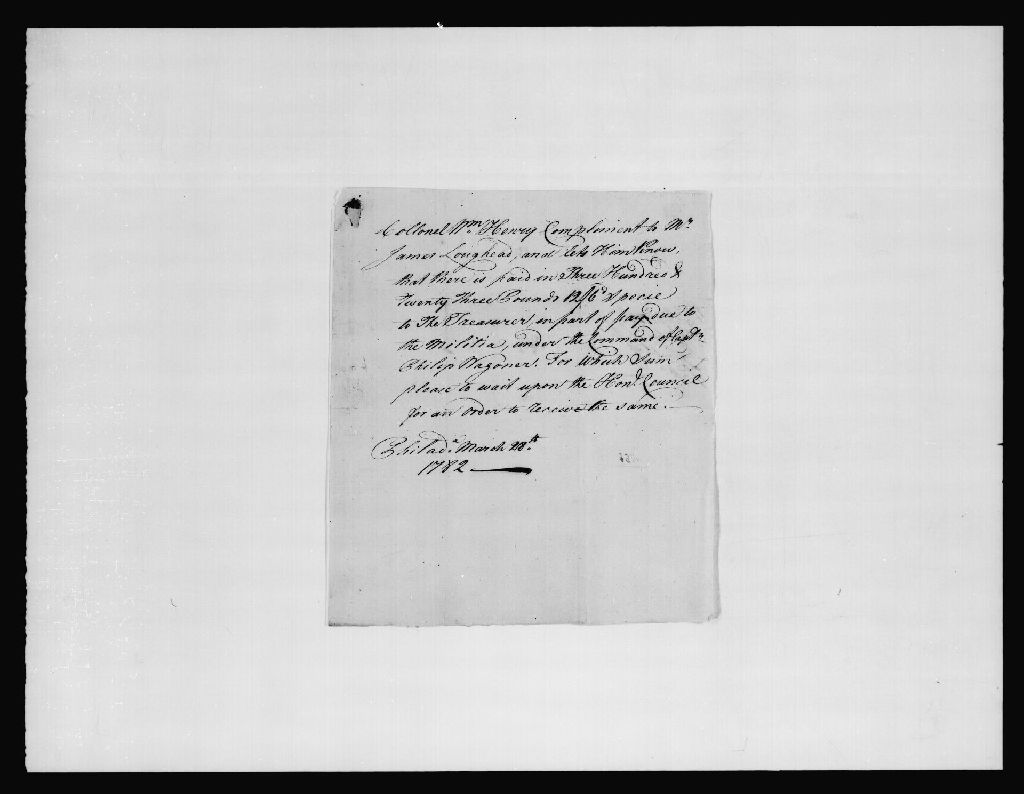 Collonel Wm. Henry Compliment to Mr.
James Loughead, and lets Him know,
that there is paid in Three Hundred &
Twenty Three Pounds 12/6d Specie
to The Treasurer, in part of pay due to
the Militia, under the Command of Captn.
Philip Wagoner. For Which Sum
please to wait upon the Hond. Council
for an order to receive the same.
Philada. March 20th.
1782